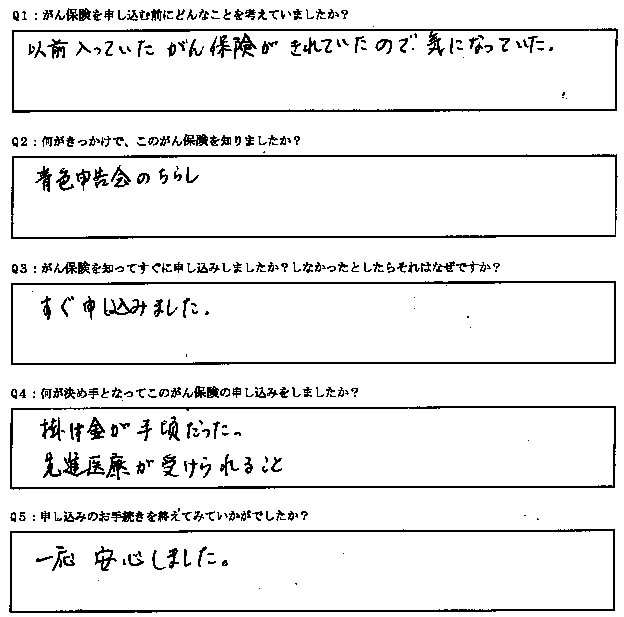 Q1：がん保険を申し込む前にどんなことを考えていましたか？
以前入っていたがん保険がきれていたので気になっていた。
Q2：何がきっかけで、このがん保険を知りましたか？
青色申告会のちらし
Q3：がん保険を知ってすぐに申し込みしましたか？しなかったとしたらそれはなぜですか？
すぐ申し込みました。
Q4：何が決め手となってこのがん保険の申し込みをしましたか？
掛け金が手頃だった。
先進医療が受けられること
Q5：申し込みのお手続きを終えてみていかがでしたか？
一応安心しました。